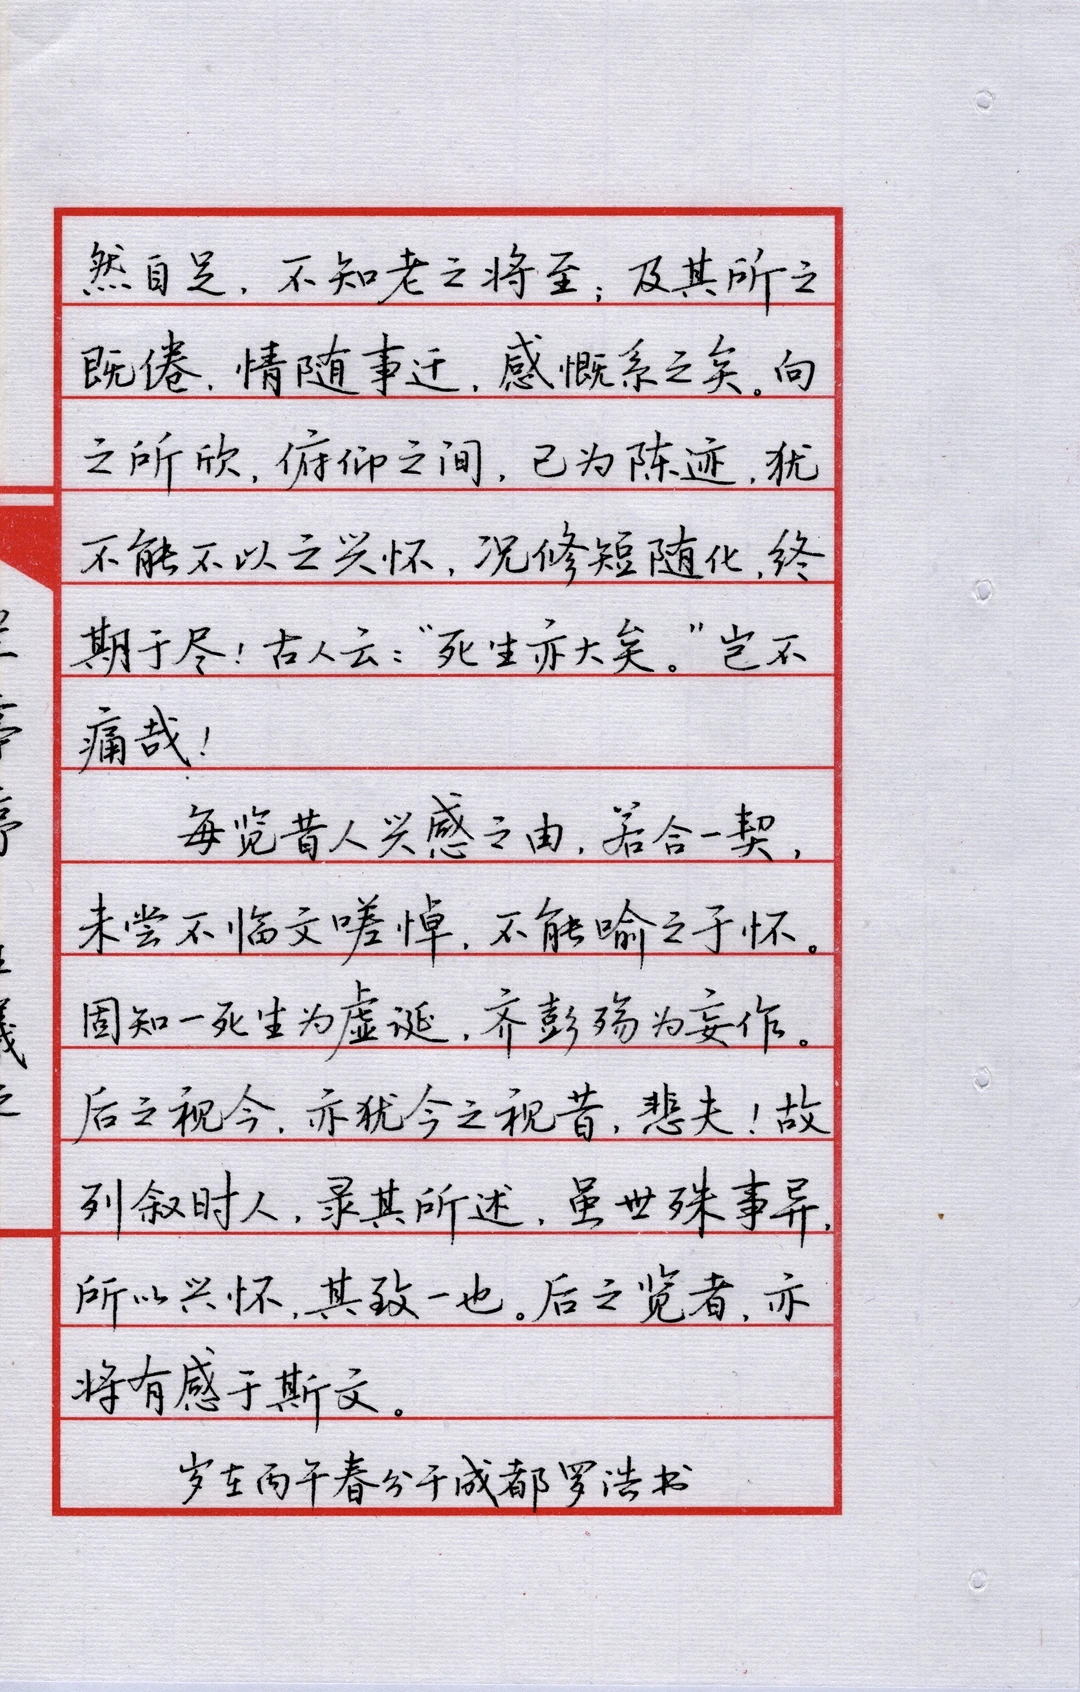 然自足，不知老之将至；及其所之
既倦，情随事迁，感慨系之矣。向
之所欣，俯仰之间，已为陈迹，犹
不能不以之兴怀，况修短随化，终
期于尽！古人云：“死生亦大矣。”岂不
痛哉！
每览昔人兴感之由，若合一契，
未尝不临文嗟悼，不能喻之于怀。
固知一死生为虚诞，齐彭殇为妄作。
后之视今，亦犹今之视昔，悲夫！故
列叙时人，录其所述，虽世殊事异，
所以兴怀，其致一也。后之览者，亦
将有感于斯文。
岁在丙午春分于成都罗浩书